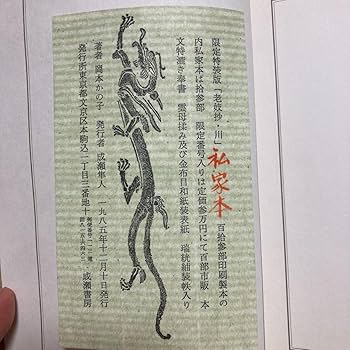 限定特装版「老妓抄・川」私家本 百拾参部印刷製本の
内私家本は拾参部 限定番号入りは定価参万円にて百部市販 本
文特漉き奉書 雲母揉み及び金布目和紙装表紙 瑞糀紬装帙入り
著者 岡本かの子 発行者 成瀬隼人 一九八五年十二月十日発行
発行所東京都文京区本駒込二丁目三番地十 成瀬書房